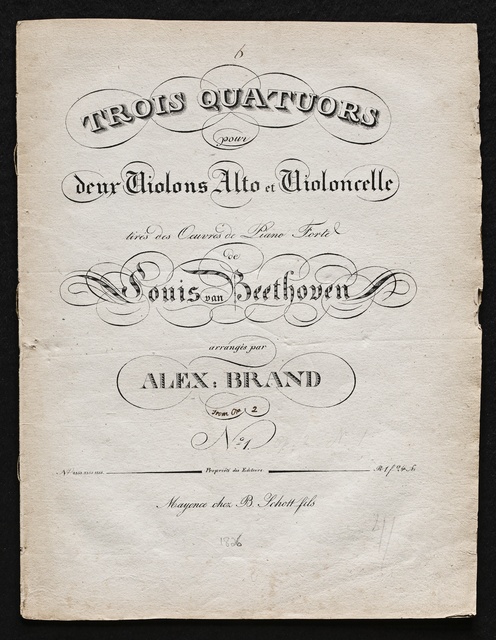 6
TROIS QUATUORS
pour
deux Violons Alto et Violoncelle
tirés des Oeuvres de Piano Forté
de
Louis van Beethoven
arrangés par
ALEX: BRAND
from Op. 2
No. 1.
No. Propriété des Editeurs.
Mayence chez B. Schott fils
1826